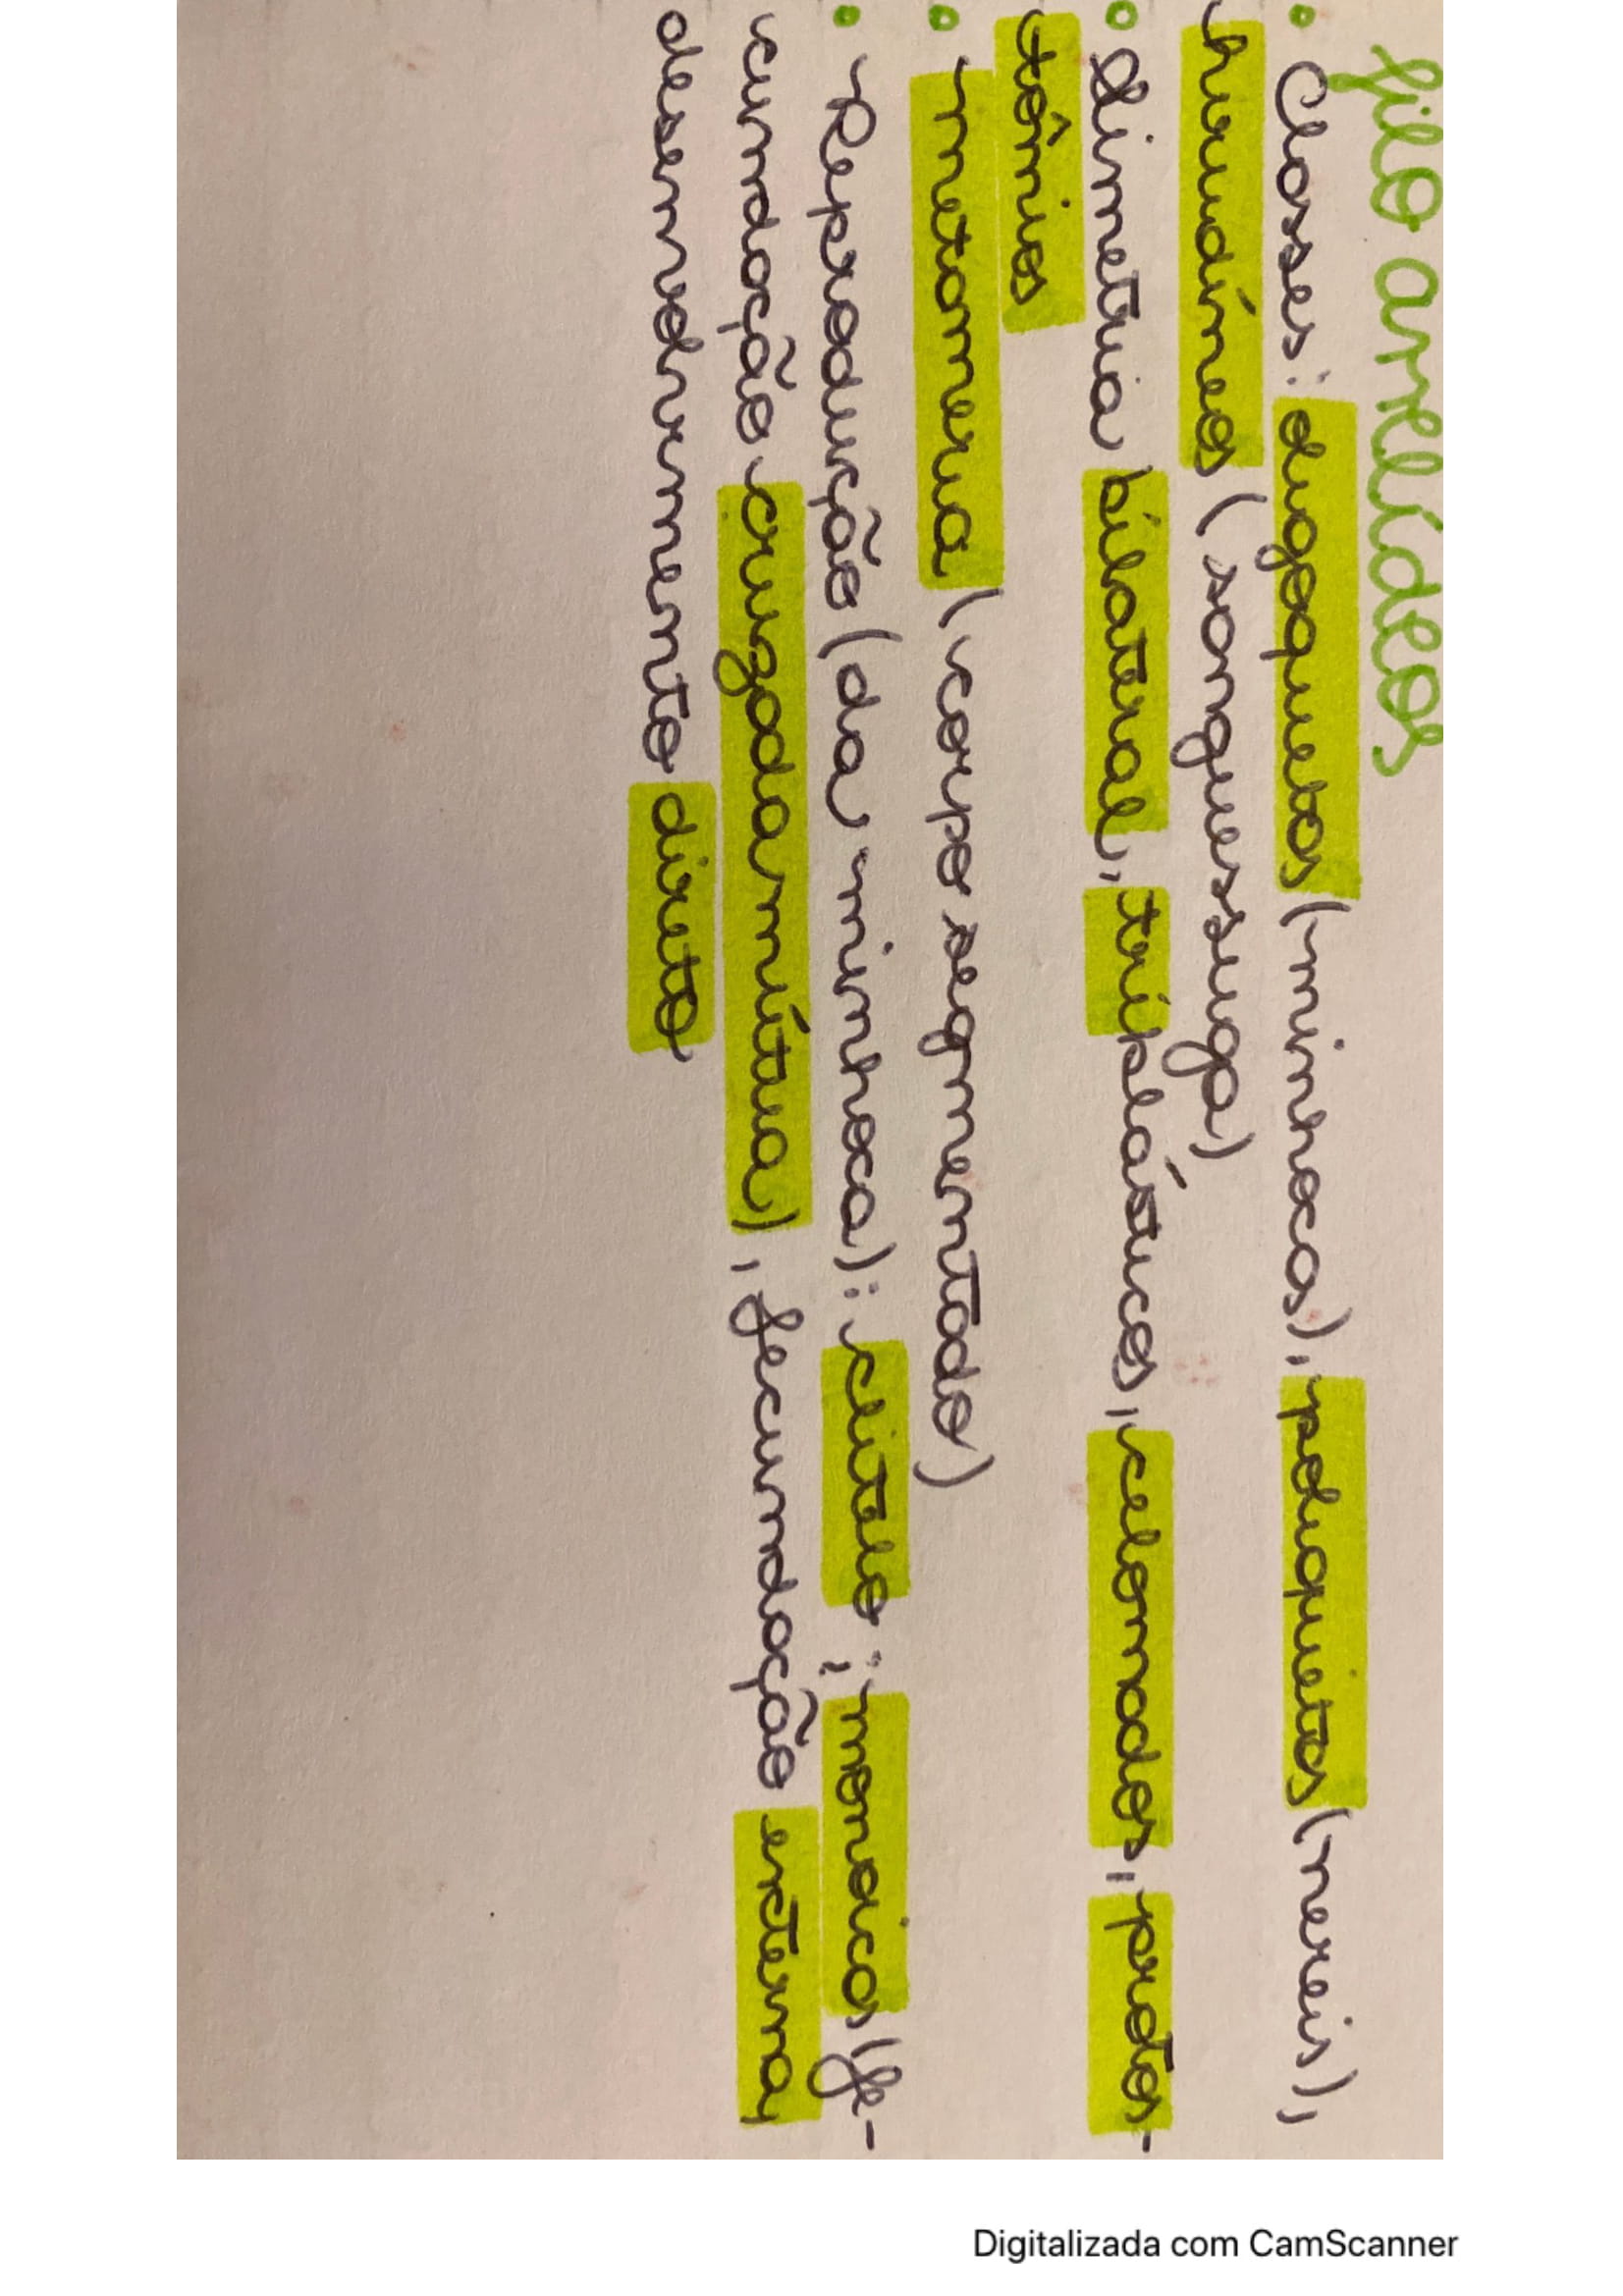 filo anelídeos
• Classes: oligoquetos (minhoca), poliquetos (nereis),
hirudíneos (sanguessuga)
• Simetria bilateral, triplásticos, celomados, protos-
tômios
• metameria (corpo segmentado)
• Reprodução (da minhoca): clitelo; monoicos (fe-
cundação cruzada mútua), fecundação externa,
desenvolvimento direto
Digitalizada com CamScanner